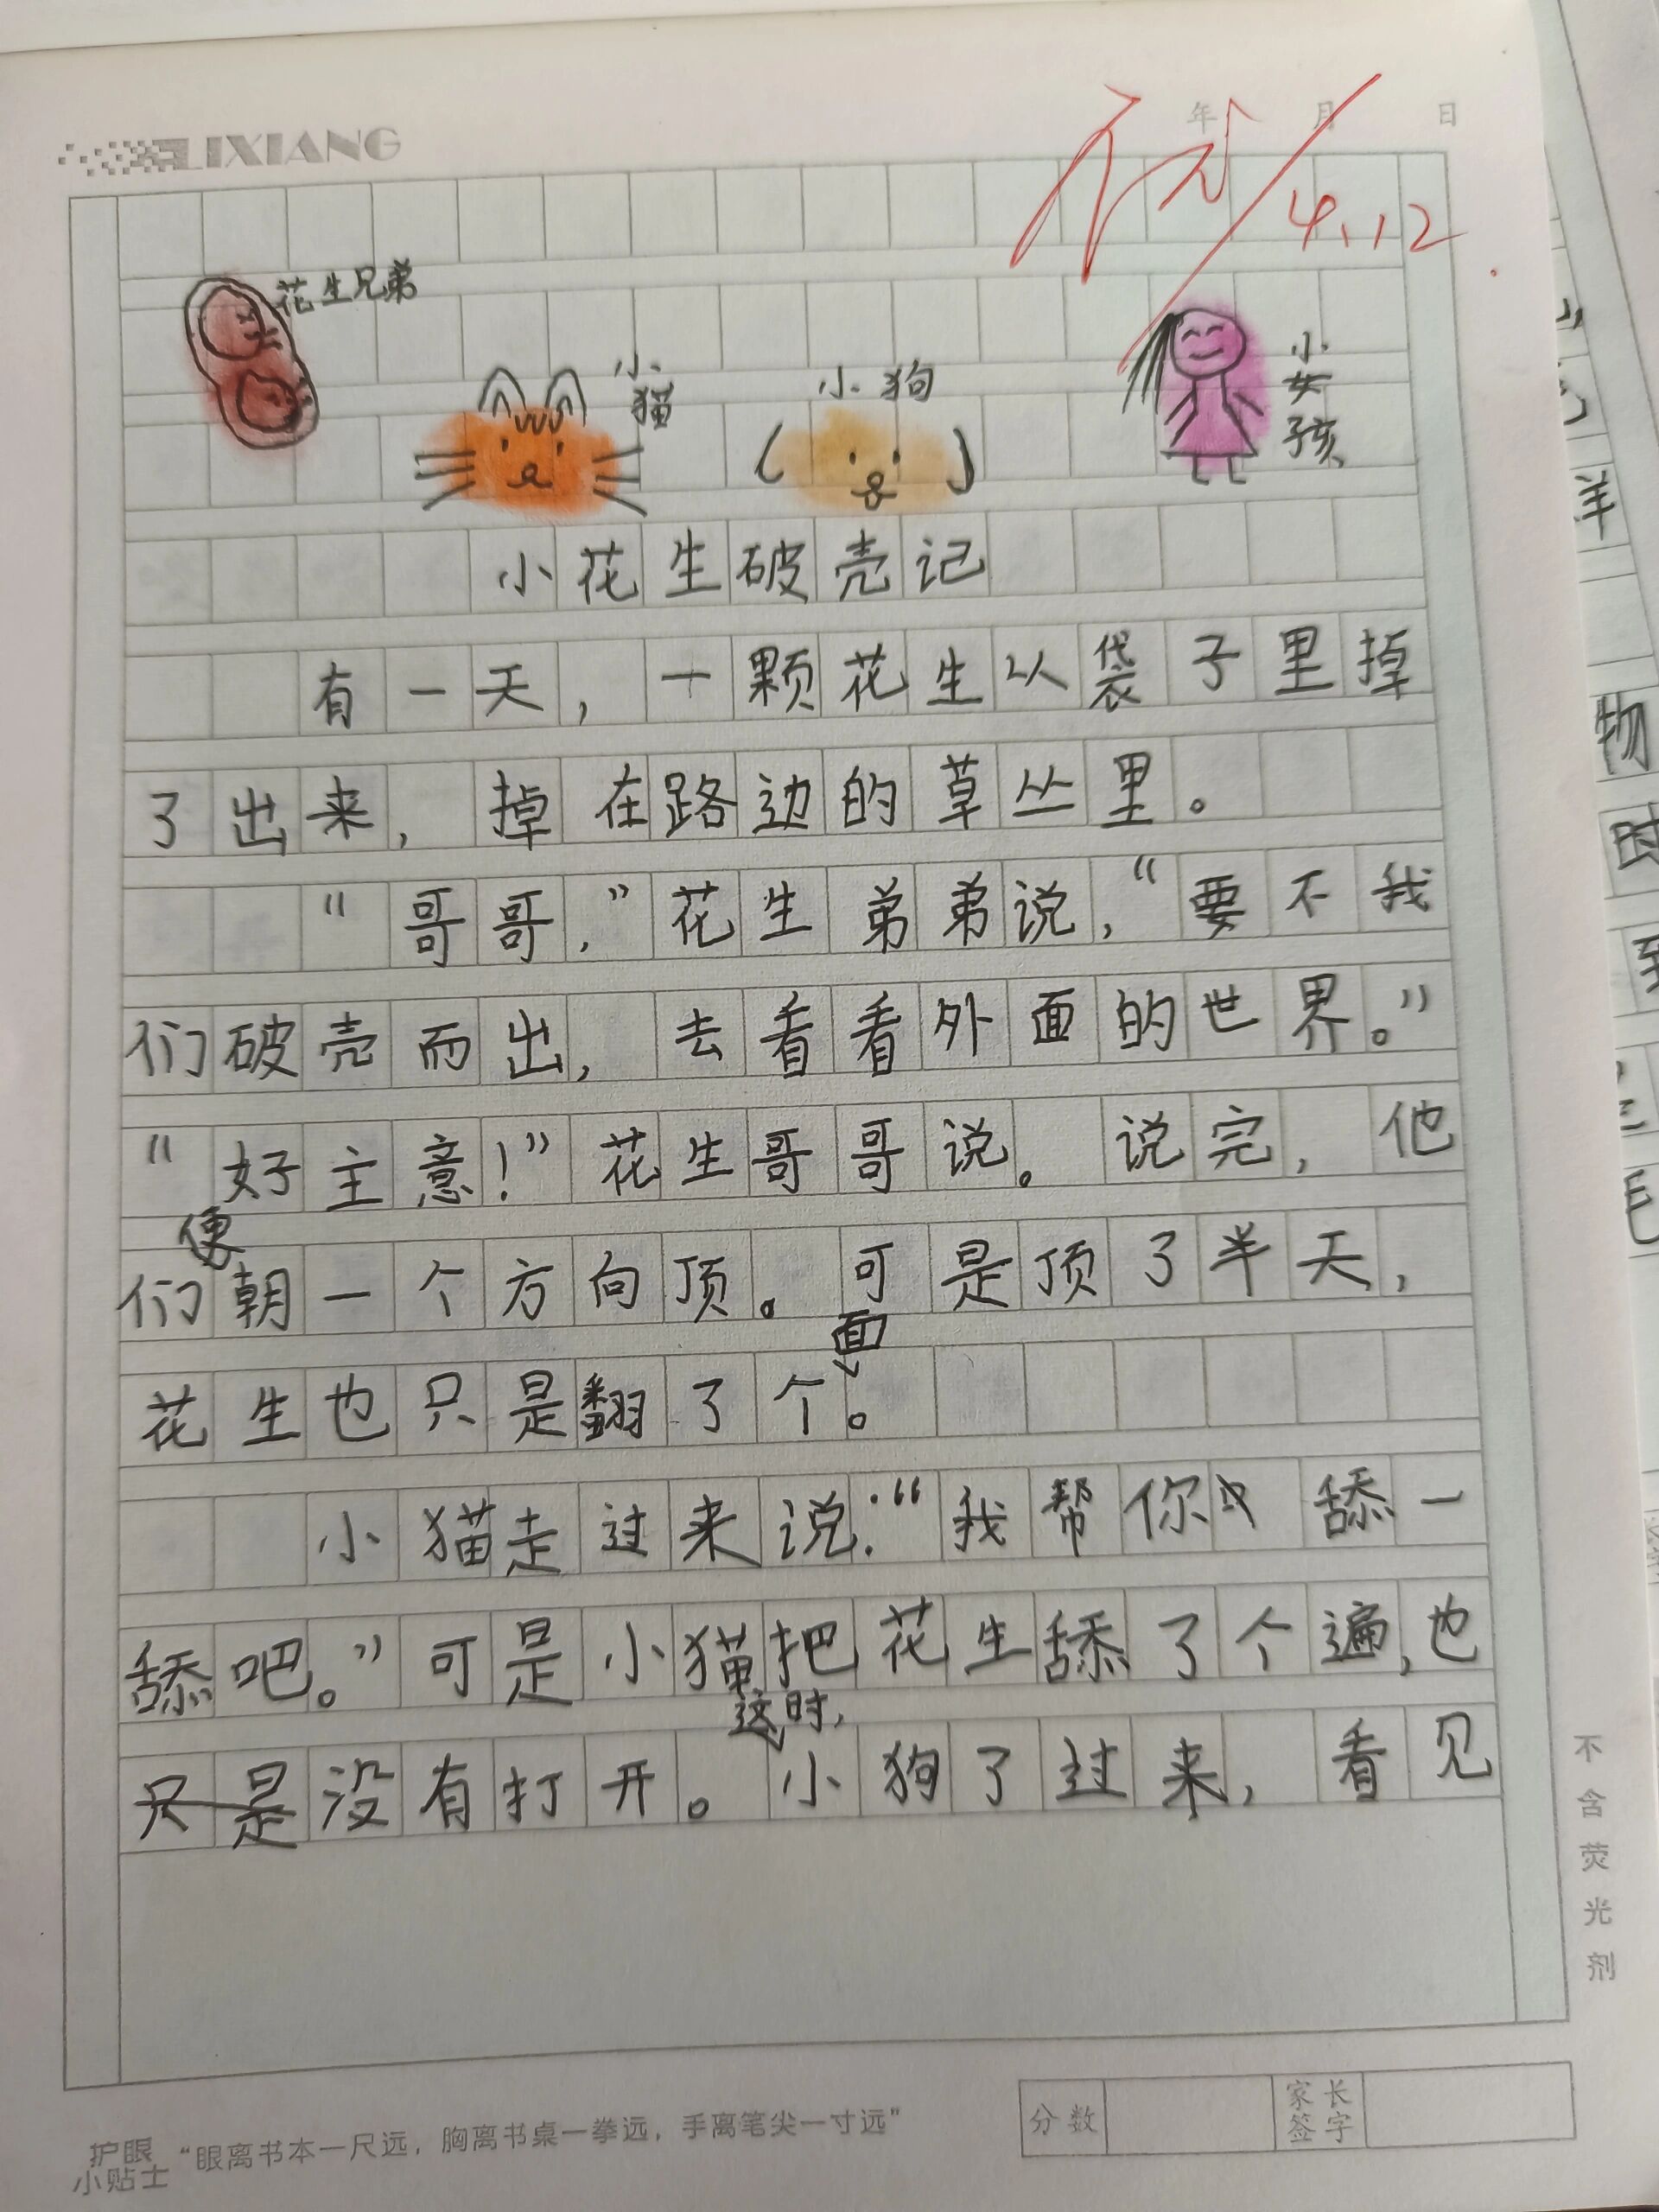 LIXIANG
年 月 日
4.12
花生兄弟
小猫
小狗
小女孩
小花生破壳记
有一天，一颗花生从袋子里掉
了出来，掉在路边的草丛里。
“哥哥，”花生弟弟说，“要不我
们破壳而出，去看看外面的世界。”
“好主意！”花生哥哥说。说完，他
便
们朝一个方向顶。可是顶了半天，
面
花生也只是翻了个。
小猫走过来说：“我帮你舔一
舔吧。”可是小猫把花生舔了个遍，也
这时，
只是没有打开。小狗了过来，看见
不含荧光剂
护眼小贴士 “眼离书本一尺远，胸离书桌一拳远，手离笔尖一寸远”
分数 家长签字
物
羊
时
毛